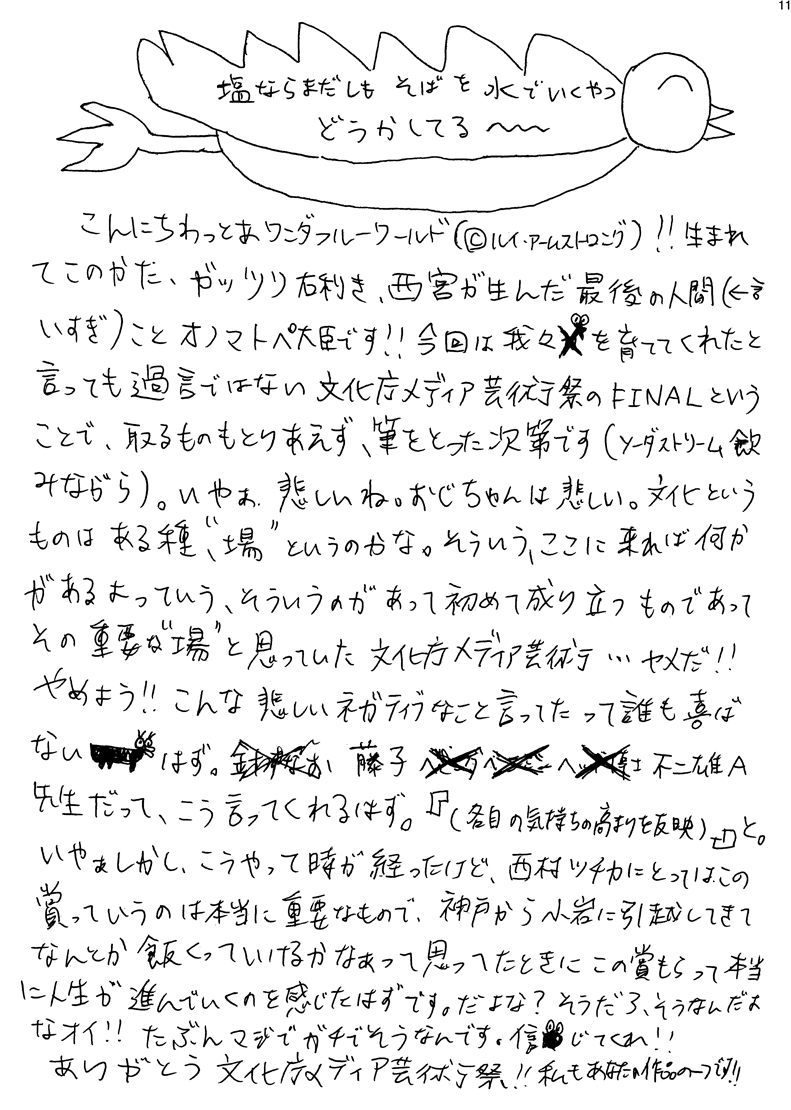 11
塩ならまだしも そばを 水でいくやつ
どうかしてる〜〜
こんにちわっとあワンダフルーワールド(©ルイ・アームストロング)!! 生まれ
てこのかた、ガッツリ右利き、西宮が生んだ最後の人間(←言
いすぎ)こと オノマトペ大臣です!! 今回は我々を育ててくれたと
言っても過言ではない 文化庁メディア芸術祭のFINALという
ことで、取るものもとりあえず、筆をとった次第です(ソーダストリーム飲
みながら)。いやぁ 悲しいね。おじちゃんは悲しい。文化という
ものは ある種、“場”というのかな。そういう、ここに来れば何か
があるよっていう、そういうのがあって初めて成り立つものであって
その重要な“場”と思っていた 文化庁メディア芸術祭…ヤメだ!!
やめよう!! こんな悲しいネガティブなこと言ってたって誰も喜ば
ない はず。 藤子 不二雄A
先生だって、こう言ってくれるはず。『(各自の気持ちの高まりを反映)』と。
いやぁしかし、こうやって時が経ったけど、西村ツチカにとってはこの
賞っていうのは本当に重要なもので、神戸から小岩に引越してきて
なんとか飯くっていけるかなぁって思ってたときにこの賞もらって本当
に人生が進んでいくのを感じたはずです。だよな?そうだろ、そうなんだよ
なオイ!! たぶんマジでガチでそうなんです。信じてくれ!!
ありがとう 文化庁メディア芸術祭!! 私もあなたの作品の一つです!!